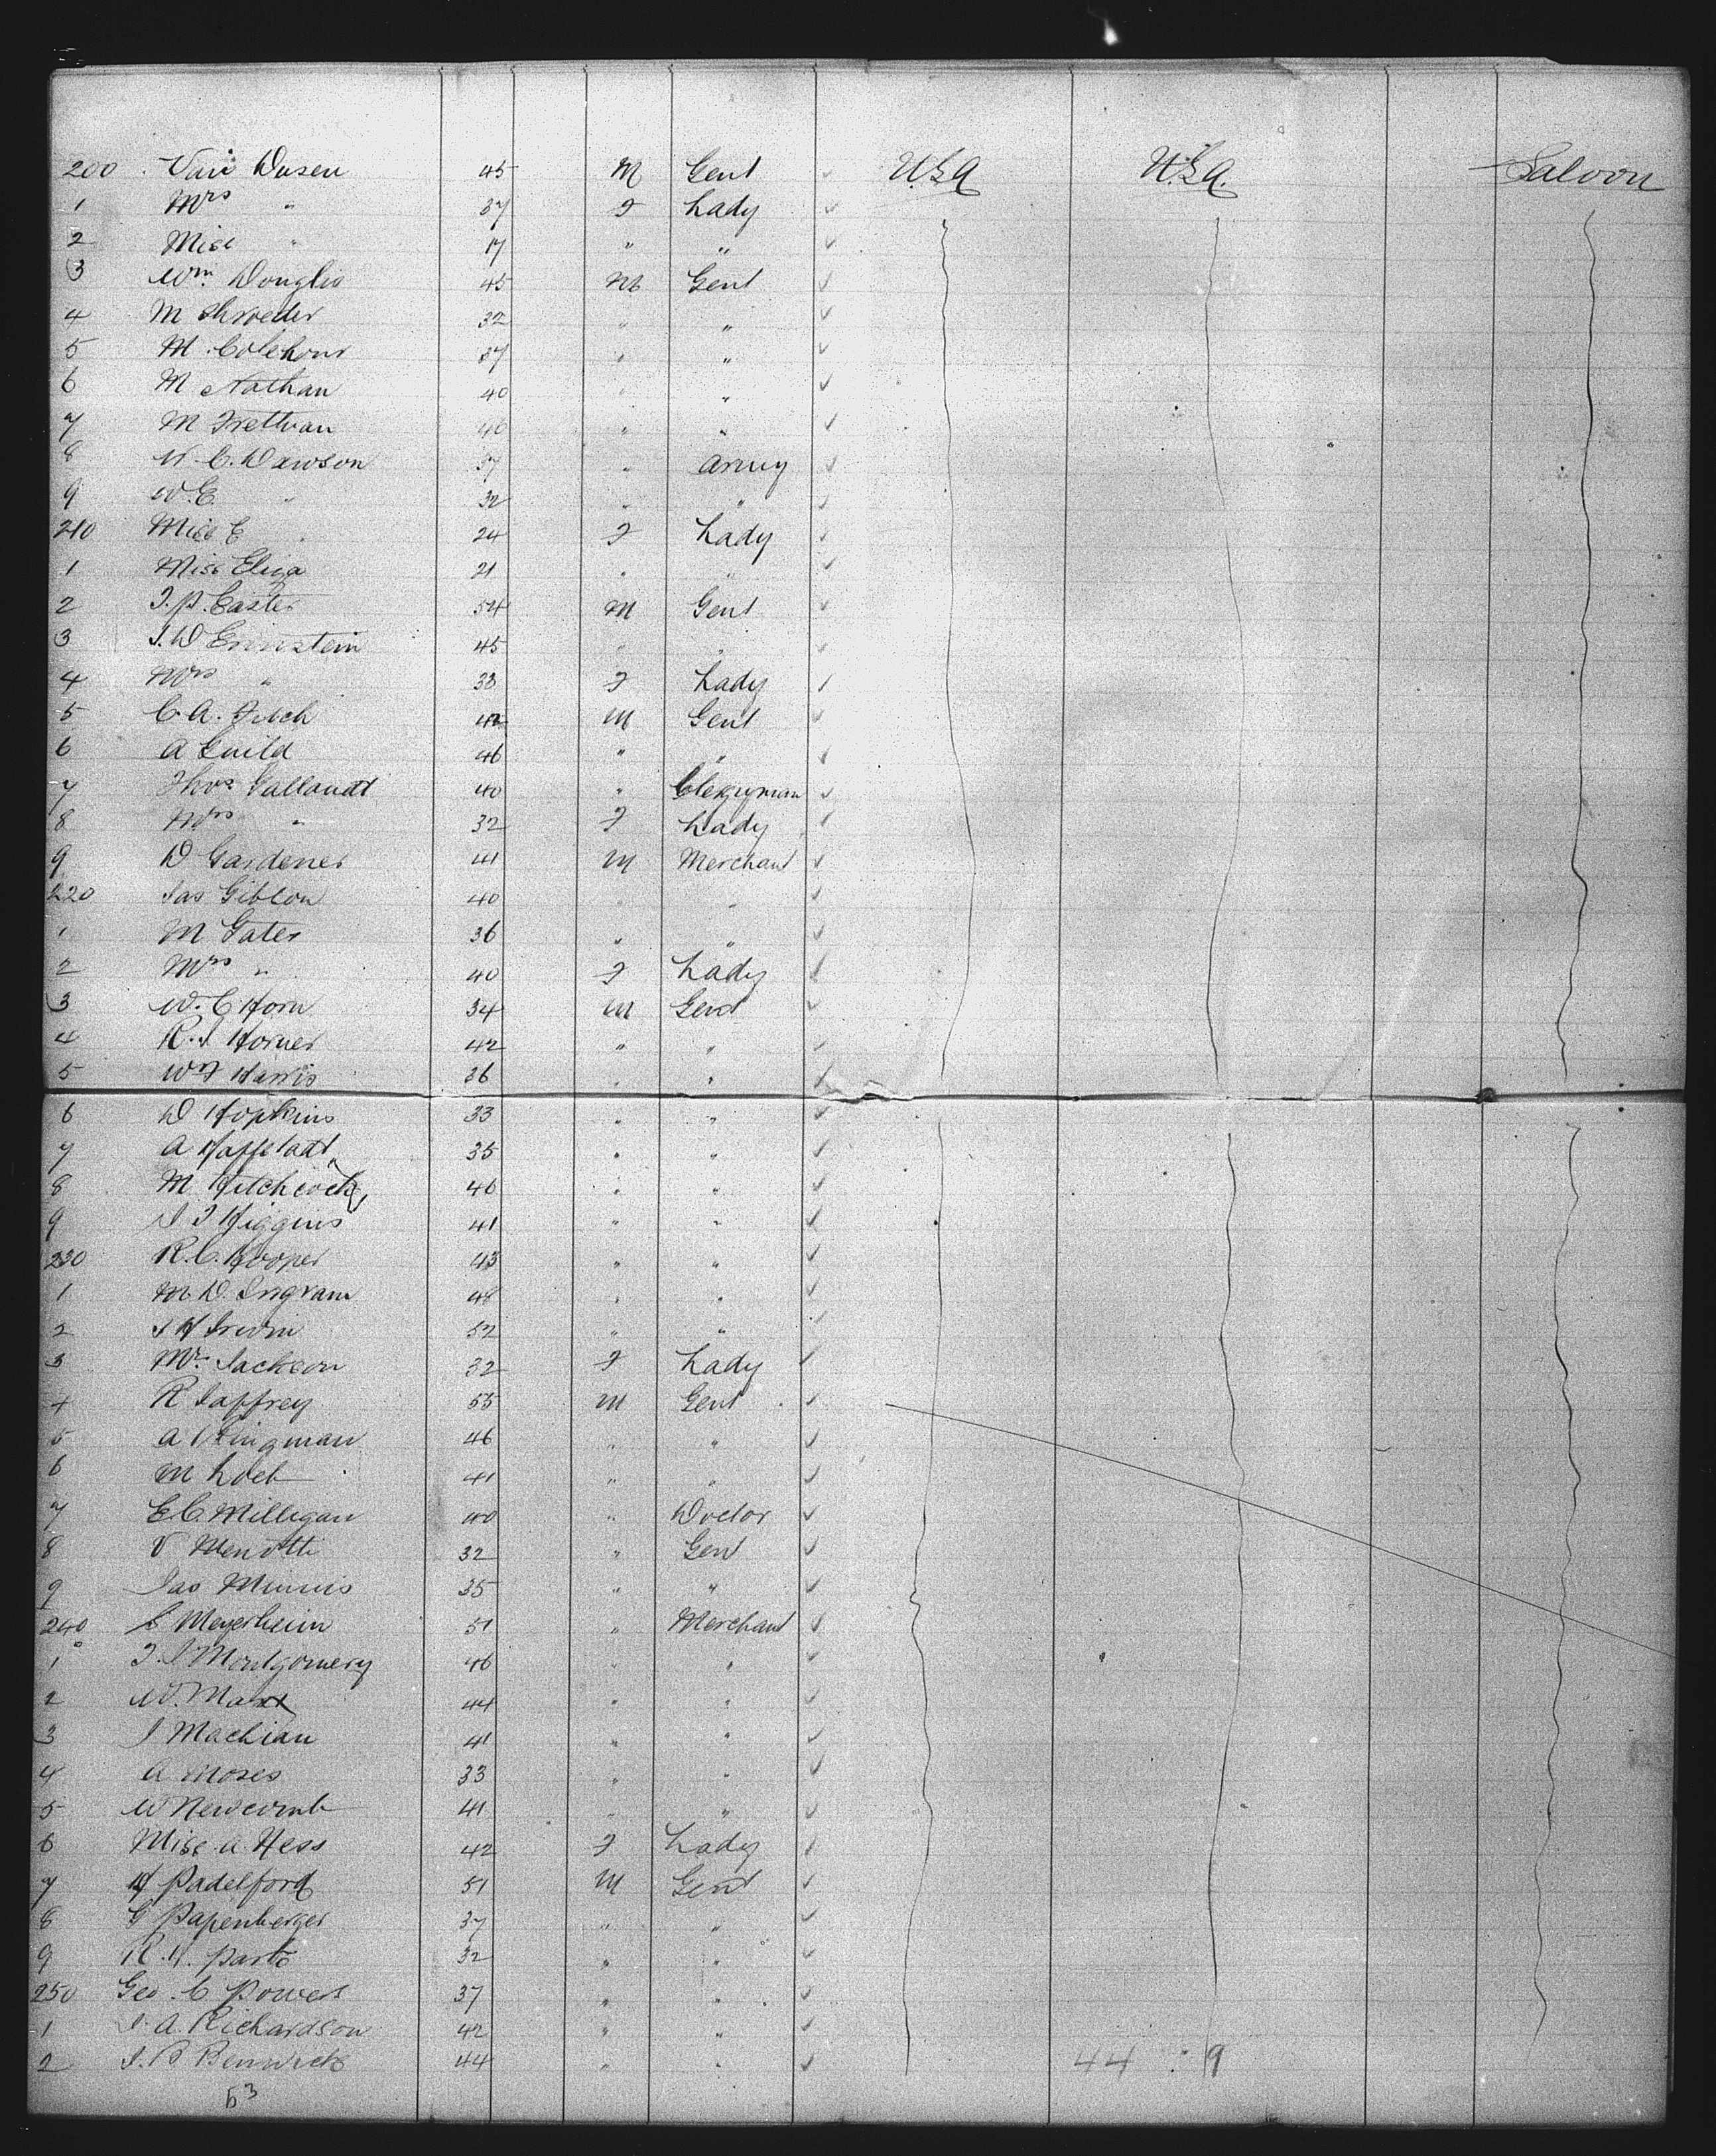 200 Van Dusen 45 M Gent U.S.A U.S.A. Saloon
1 Mrs " 37 F Lady
2 Miss " 17 " "
3 Wm. Douglis 45 M Gent
4 M Shroeder 32 " "
5 M. Colehour 37 " "
6 M Nathan 40 " "
7 M Trettvan 46 " "
8 N. C. Dawson 57 " Army
9 W. E. " 32 " "
210 Miss E " 24 F Lady
1 Miss Eliza 21 " "
2 J. P. Easter 54 M Gent
3 J. W 45 " "
4 Mrs " 33 F Lady
5 C. A. Fitch 42 M Gent
6 A Guild 46 " "
7 Thos Gallaudt 40 " Clergyman
8 Mrs " 32 F Lady
9 D Gardener 41 M Merchant
220 Jas Gibbon 40 " "
1 M Gates 36 " "
2 Mrs " 40 F Lady
3 W. C Horn 34 M Gent
4 R. J Horner 42 " "
5 Wm F Harris 36 " "
6 D Hopkins 33 " "
7 A 35 " "
8 M Hitchcock 46 " "
9 J J Higgins 41 " "
230 R. C. Hooper 43 " "
1 M. D. Ingram 48 " "
2 J H Irwin 52 " "
3 Mrs Jackson 32 F Lady
4 R Jaffrey 55 M Gent
5 A Kingman 46 " "
6 M Loeb 41 " "
7 E C. Milligan 40 " Doctor
8 V Menotti 32 " Gent
9 Jas Minnis 35 " "
240 S Meyerheim 51 " Merchant
1 J. J Montgomery 46 " "
2 W. Marx 44 " "
3 J Machian 41 " "
4 A Moses 33 " "
5 W Newcomb 41 " "
6 Miss A. Ness 42 F Lady
7 H Padelford 51 M Gent
8 G Papenberger 37 " "
9 R. H. Parks 32 " "
250 Geo. C Powers 37 " "
1 J. A. Richardson 42 " "
2 J. B 44 " " 44 : 9
53